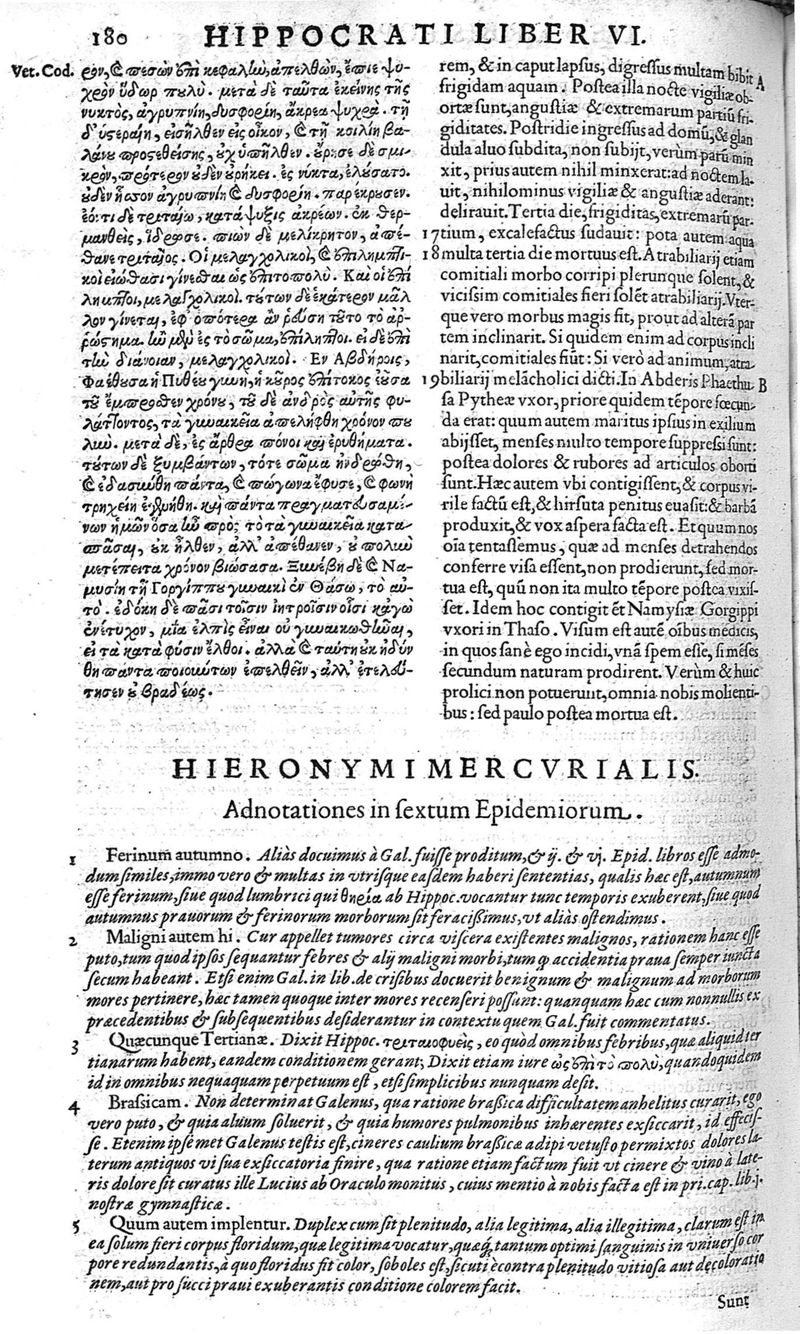 180 HIPPOCRATI LIBER VI.
Vet. Cod.
ρον, καὶ πεσὼν ἐπὶ κεφαλὴν, ἀπελθὼν, ἔπιε ψυ-
χρὸν ὕδωρ πολύ. μετὰ δὲ ταῦτα ἐκείνης τῆς
νυκτὸς, ἀγρυπνίη, δυσφορίη, ἄκρεα ψυχρά. τῇ
δ' ὑστεραίῃ, εἰσῆλθεν εἰς οἶκον, καὶ τῇ κοιλίῃ βα-
λάνου προσεθείσης, οὐχ ὑπῆλθεν. οὔρησε δὲ σμι-
κρὸν, πρότερον οὐδὲν οὐρήκει. ἐς νύκτα, ἐλούσατο.
οὐδὲν ἧσσον ἀγρυπνίη καὶ δυσφορίη. παρέκρουσεν.
ἐό: τι δὲ τριταίῳ, κατάψυξις ἀκρέων. ἐκ θερ-
μανθεὶς, ἵδρωσε. πιὼν δὲ μελίκρητον, ἀπέ-
θανε τριταῖος. Οἱ μελαγχολικοὶ, καὶ ἐπιλημπτι-
κοὶ εἰώθασι γίνεσθαι ὡς ἐπιτοπολύ. Καὶ οἱ ἐπί
ληπτοι, μελαγχολικοί. τούτων δὲ ἑκάτερον μᾶλ
λον γίνεται, ἐφ' ὁπότερα ἂν ῥεύσῃ τοῦτο τὸ ἀρ-
ρώστημα. ἢν μὲν ἐς τὸ σῶμα, ἐπίληπτοι. εἰ δὲ ἐπὶ
τὴν διάνοιαν, μελαγχολικοί. Εν Αβδήροις,
Φαέθουσα ἡ Πυθέου γυνὴ, ἡ κοῦρος ἐπίτοκος ἐοῦσα
τοῦ ἔμπροσθεν χρόνου, τοῦ δὲ ἀνδρὸς αὐτῆς φυ-
λάττοντος, τὰ γυναικεῖα ἀπελήφθη χρόνον που
λύν. μετὰ δὲ, ἐς ἄρθρα πόνοι καὶ ἐρυθήματα.
τούτων δὲ ξυμβάντων, τότε σῶμα ἠνδρώθη,
καὶ ἐδασύνθη πάντα, καὶ πώγωνα ἔφυσε, καὶ φωνὴ
τρηχείη ἐγενήθη. καὶ πάντα πραγματευσαμέ-
νων ἡμῶν ὅσα ἦν πρὸς τὸ τὰ γυναικεῖα κατα-
σπᾶσαι, οὐκ ἦλθεν, ἀλλ' ἀπέθανεν, οὐ πολὺν
μετέπειτα χρόνον βιώσασα. Ξυνέβη δὲ καὶ Να-
μυσίῃ τῇ Γοργίππου γυναικὶ ἐν Θάσῳ, τὸ αὐ-
τό. ἐδόκη δὲ πᾶσι τοῖσιν ἰητροῖσιν οἷσι κἀγὼ
ἐνέτυχον, μία ἐλπὶς εἶναι οὐ γυναικωθῆναι,
εἰ τὰ κατὰ φύσιν ἔλθοι. ἀλλὰ καὶ ταύτῃ οὐκ ἠδύν
θη πάντα ποιούντων ἐπελθεῖν, ἀλλ' ἐτελεύ-
τησεν οὐ βραδέως.
rem, & in caput lapsus, digressus multam bibit A
frigidam aquam. Postea illa nocte vigiliæ ob-
ortæ sunt, angustiæ & extremarum partiū fri-
giditates. Postridie ingressus ad domū, & glan
dula aluo subdita, non subijt, verùm parū min
xit, prius autem nihil minxerat: ad noctem la-
uit, nihilominus vigiliæ & angustiæ aderant:
delirauit. Tertia die, frigiditas, extremarū par-
17 tium, excalefactus sudauit: pota autem aqua
18 multa tertia die mortuus est. Atrabiliarij etiam
comitiali morbo corripi plerunque solent, &
vicissim comitiales fieri solēt atrabiliarij. Vter-
que vero morbus magis fit, prout ad alterā par
tem inclinarit. Si quidem enim ad corpus incli
narit, comitiales fiūt: Si verò ad animum, atra-
19 biliarij melācholici dicti. In Abderis Phaethu- B
sa Pytheæ vxor, priore quidem tēpore fœcun-
da erat: quum autem maritus ipsius in exilium
abijsset, menses multo tempore suppressi sunt:
postea dolores & rubores ad articulos oborti
sunt. Hæc autem vbi contigissent, & corpus vi-
rile factū est, & hirsuta penitus euasit: & barbā
produxit, & vox aspera facta est. Et quum nos
oīa tentassemus, quæ ad menses detrahendos
conferre visa essent, non prodierunt, sed mor-
tua est, quū non ita multo tēpore postea vixis-
set. Idem hoc contigit ēt Namysiæ Gorgippi
vxori in Thaso. Visum est autē oībus medicis,
in quos sanè ego incidi, vnā spem esse, si mēses
secundum naturam prodirent. Verùm & huic
prolici non potuerunt, omnia nobis molienti-
bus: sed paulo postea mortua est.
HIERONYMI MERCVRIALIS.
Adnotationes in sextum Epidemiorum.
1 Ferinum autumno. Aliàs docuimus à Gal. fuisse proditum, & ij. & vj. Epid. libros esse admo-
dum similes, immo vero & multas in vtrisque easdem haberi sententias, qualis hæc est, autumnum
esse ferinum, siue quod lumbrici qui θηρία ab Hippoc. vocantur tunc temporis exuberent, siue quod
autumnus prauorum & ferinorum morborum sit feracissimus, vt aliàs ostendimus.
2 Maligni autem hi. Cur appellet tumores circa viscera existentes malignos, rationem hanc esse
puto, tum quod ipsos sequantur febres & alij maligni morbi, tum q̃ accidentia praua semper iuncta
secum habeant. Etsi enim Gal. in lib. de crisibus docuerit benignum & malignum ad morborum
mores pertinere, hæc tamen quoque inter mores recenseri possunt: quanquam hæc cum nonnullis ex
præcedentibus & subsequentibus desiderantur in contextu quem Gal. fuit commentatus.
3 Quæcunque Tertianæ. Dixit Hippoc. τριταιοφυεῖς, eo quòd omnibus febribus, quæ aliquid ter
tianarum habent, eandem conditionem gerant; Dixit etiam iure ὡς ἐπὶ τὸ πολὺ, quandoquidem
id in omnibus nequaquam perpetuum est, etsi simplicibus nunquam desit.
4 Brassicam. Non determinat Galenus, qua ratione brassica difficultatem anhelitus curarit, ego
vero puto, & quia aluum soluerit, & quia humores pulmonibus inhærentes exsiccarit, id effecis-
se. Etenim ipsemet Galenus testis est, cineres caulium brassicæ adipi vetusto permixtos dolores la-
terum antiquos vi sua exsiccatoria finire, qua ratione etiam factum fuit vt cinere & vino à late-
ris dolore sit curatus ille Lucius ab Oraculo monitus, cuius mentio à nobis facta est in pri. cap. lib. j.
nostræ gymnasticæ.
5 Quum autem implentur. Duplex cum sit plenitudo, alia legitima, alia illegitima, clarum est in
ea solum fieri corpus floridum, quæ legitima vocatur, quæq; tantum optimi sanguinis in vniuerso cor
pore redundantis, à quo floridus fit color, soboles est, sicuti econtra plenitudo vitiosa aut decoloratio
nem, aut pro succi praui exuberantis conditione colorem facit.
Sunt